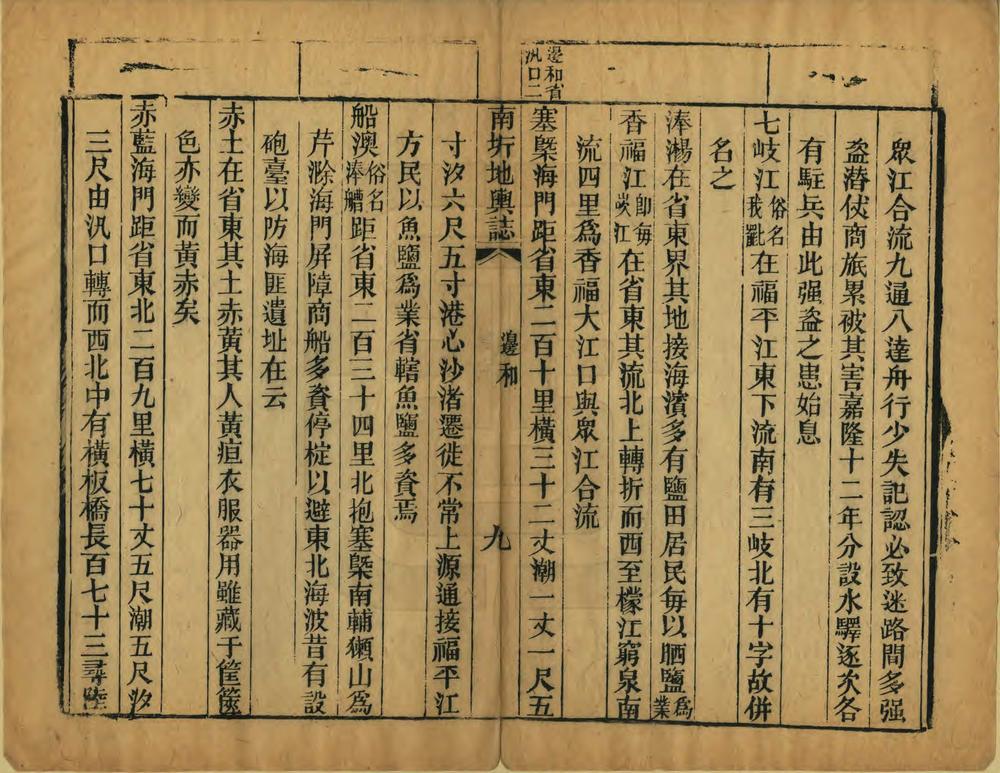 邊和省
汛口二
眾江合流九通八達舟行少失記認必致迷路間多强
盗潛伏商旅累被其害嘉隆十二年分設水驛逐次各
有駐兵由此强盗之患始息
七岐江俗名我𣦍在福平江東下流南有三岐北有十字故併
名之
滓𣻕在省東界其地接海濱多有鹽田居民每以晒鹽爲業
香福江即每㟴江在省東其流北上轉折而西至檬江窮泉南
流四里爲香福大江口與眾江合流
塞㮣海門距省東二百十里橫三十二丈潮一丈一尺五
南圻地輿誌 邊和 九
寸汐六尺五寸港心沙渚遷徙不常上源通接福平江
方民以魚鹽爲業省轄魚鹽多資焉
船澳俗名滓艚距省東二百三十四里北抱塞㮣南輔獺山爲
芹滁海門屏障商船多資停椗以避東北海波昔有設
砲臺以防海匪遺址在云
赤土在省東其土赤黃其人黃疸衣服器用雖藏于筐篋
色亦變而黃赤矣
赤藍海門距省東北二百九里橫七十丈五尺潮五尺汐
三尺由汛口轉而西北中有橫板橋長百七十三尋陸